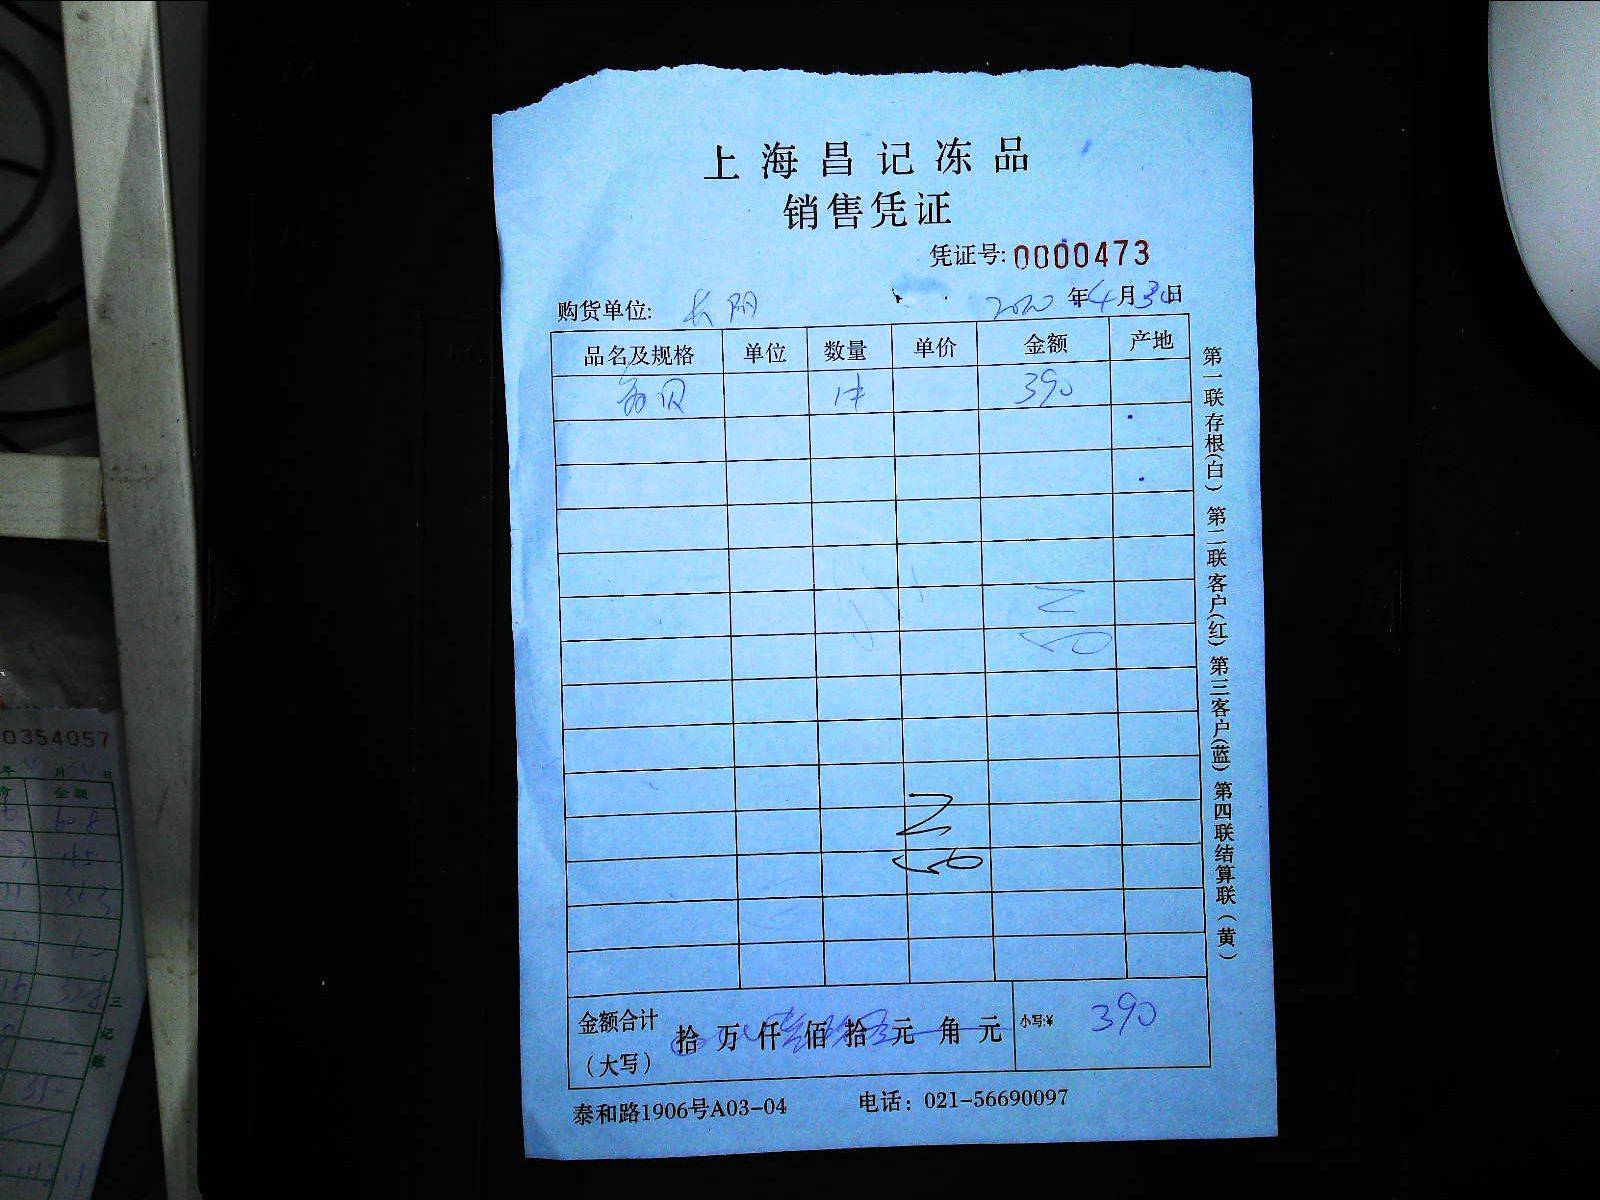 上海昌记冻品
销售凭证
凭证号:0000473
购货单位: 长阳 2020年4月30日
品名及规格 单位 数量 单价 金额 产地
贝 1件 390
金额合计（大写） 拾 万 仟 佰 拾 元 角 元 小写:¥ 390
泰和路1906号A03-04 电话：021-56690097
第一联存根(白) 第二联客户(红) 第三客户(蓝) 第四联结算联(黄)
0354057
年 月 日
价 金额
608
145
363
35-
三
记
账